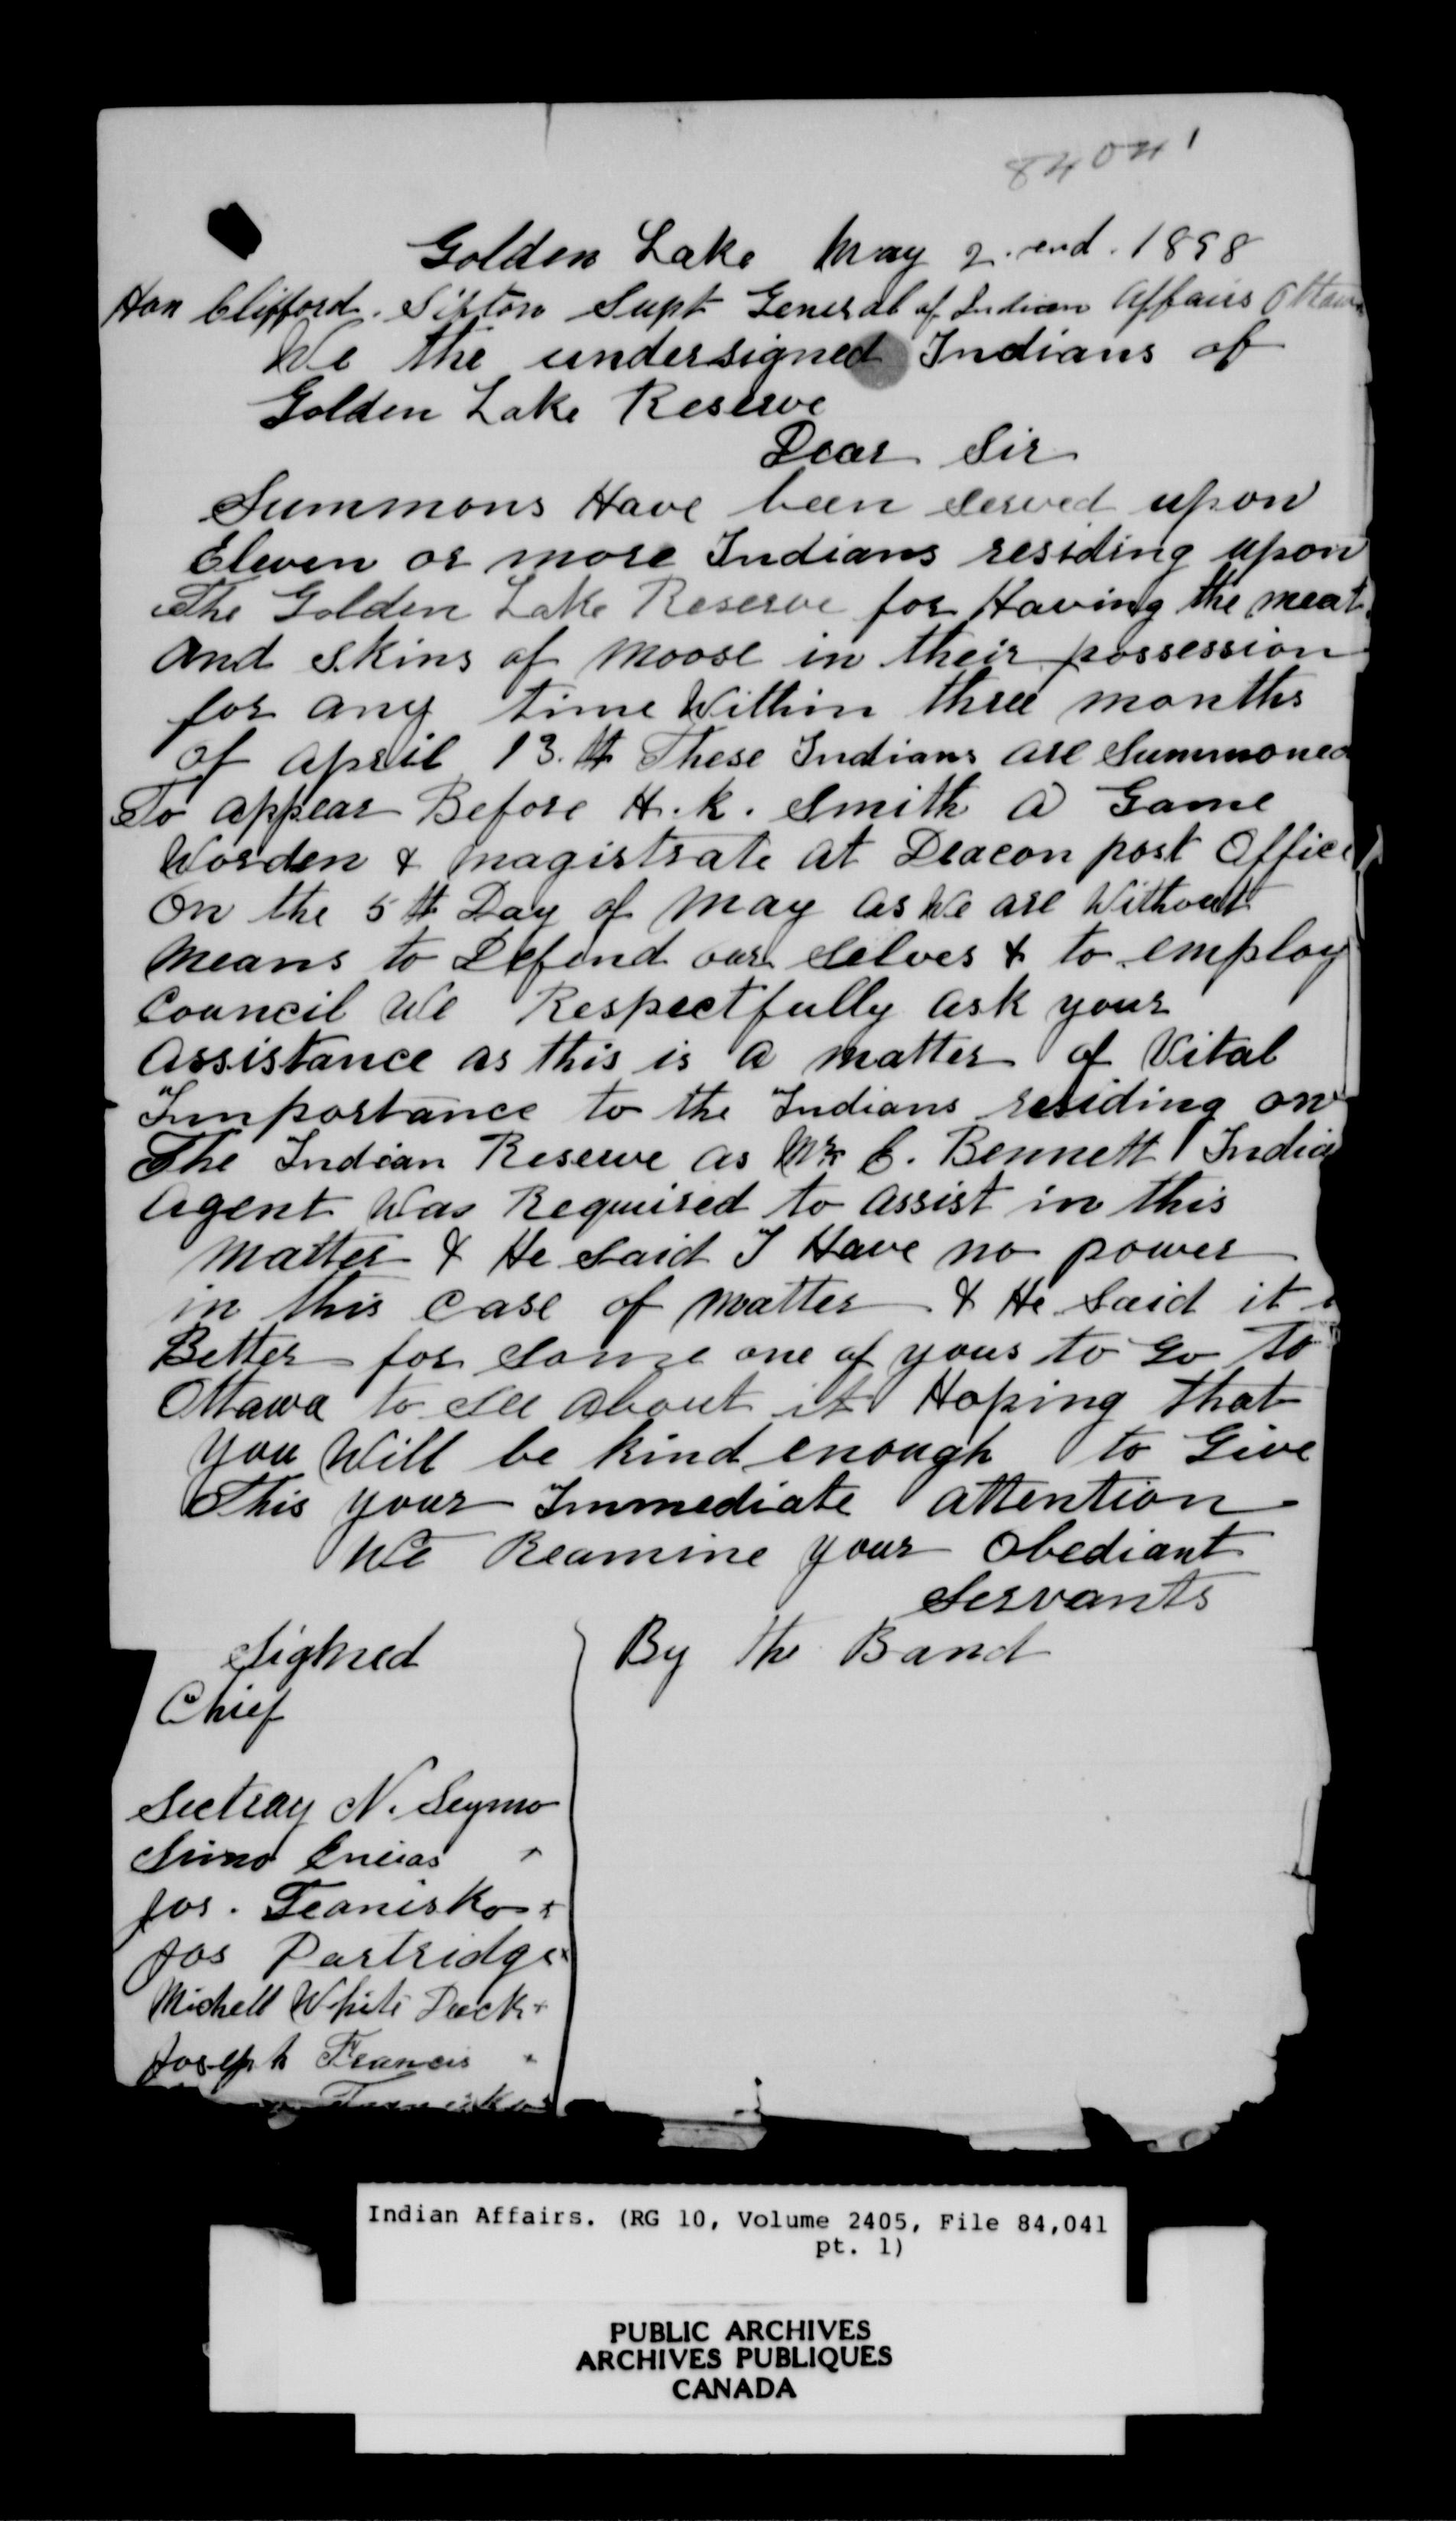 84041
Golden Lake May 2.end. 1898
Hon Clifford. Sifton Supt General of Indian Affairs Ottawa
We the undersigned Indians of
Golden Lake Reserve
Dear Sir
Summons Have been Served upon
Eleven or more Indians residing upon
The Golden Lake Reserve for Having the meat
and skins of moose in their possession
for any time Within three months
of april 13.th These Indians are Summoned
To appear Before H.K. Smith a Game
Worden & magistrate at Deacon post Office
On the 5th Day of May as We are Without
means to Defend our selves & to employ
Council We Respectfully ask your
assistance as this is a matter of Vital
Importance to the Indians residing on
The Indian Reserve as Mr C. Bennett India
agent Was Required to assist in this
matter & He Said I Have no power
in this case of matter & He Said it
Better for Some one of yous to Go To
Ottawa to See about it Hoping that
you Will be kind enough to Give
This your Immediate attention
We Reamine your Obediant
Servants
Sighned
By the Band
Chief
Sectray N. Seymo
Simo Eneias "
Jos. Teanisko x
Jos Partridge x
Michell White Duck x
Joseph Francis "
Indian Affairs. (RG 10, Volume 2405, File 84,041
pt. 1)
PUBLIC ARCHIVES
ARCHIVES PUBLIQUES
CANADA